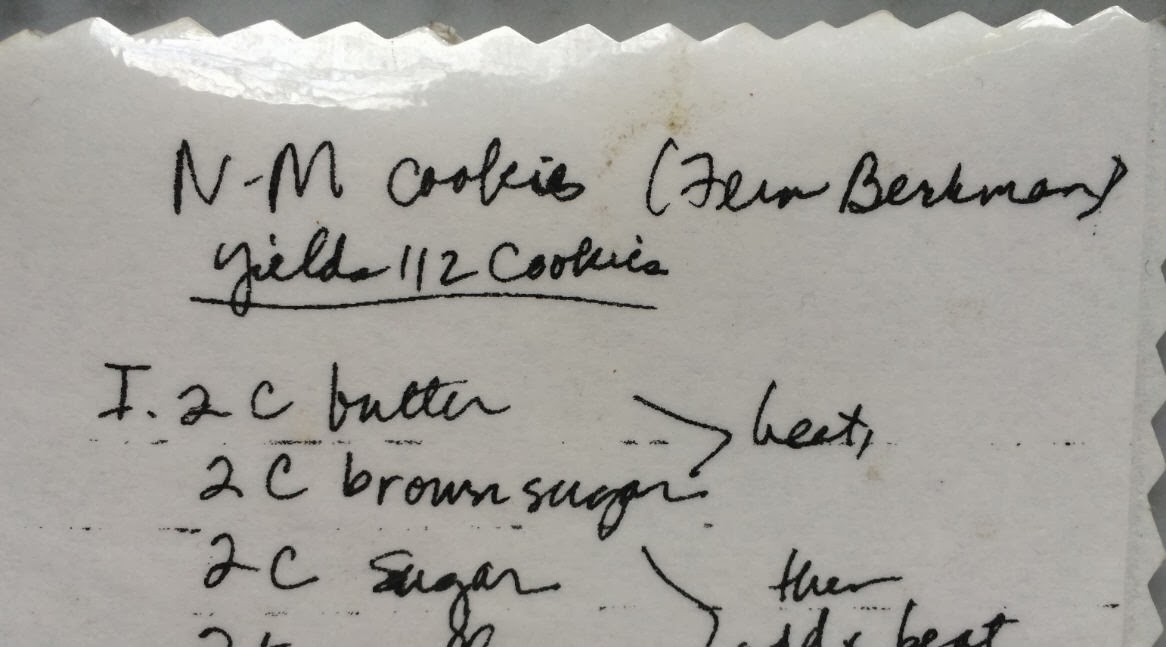 N-M cookies (Fern Berkman)
yields 112 Cookies
I. 2 C butter
beat,
2 C brown sugar
2 C sugar then
add & beat